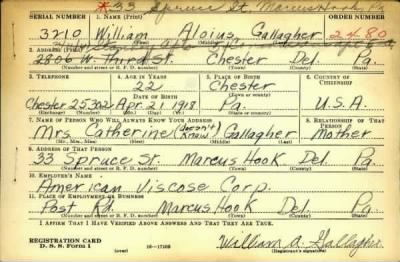 *33 Spruce St. Marcus Hook, Pa
SERIAL NUMBER 1. NAME (Print) ORDER NUMBER
3210 William Aloius Gallagher 2480
(First) (Middle) (Last)
2. ADDRESS (Print)
2806 W. Third St. Chester Del. Pa.
(Number and street or R. F. D. number) (Town) (County) (State)
3. TELEPHONE 4. AGE IN YEARS 5. PLACE OF BIRTH 6. COUNTRY OF CITIZENSHIP
22 Chester
DATE OF BIRTH (Town or county)
Chester 25302 Apr. 21 1918. Pa. U.S.A.
(Exchange) (Number) (Mo.) (Day) (Yr.) (State or country)
7. NAME OF PERSON WHO WILL ALWAYS KNOW YOUR ADDRESS 8. RELATIONSHIP OF THAT PERSON
Mrs. Catherine (doesn't know) Gallagher Mother
(Mr., Mrs., Miss) (First) (Middle) (Last)
9. ADDRESS OF THAT PERSON
33 Spruce St. Marcus Hook Del. Pa.
(Number and street or R. F. D. number) (Town) (County) (State)
10. EMPLOYER'S NAME
American Viscose Corp.
11. PLACE OF EMPLOYMENT OR BUSINESS
Post Rd. Marcus Hook Del. Pa.
(Number and street or R. F. D. number) (Town) (County) (State)
I AFFIRM THAT I HAVE VERIFIED ABOVE ANSWERS AND THAT THEY ARE TRUE.
REGISTRATION CARD
D. S. S. Form 1 (over) 16-17105 William A. Gallagher
(Registrant's signature)